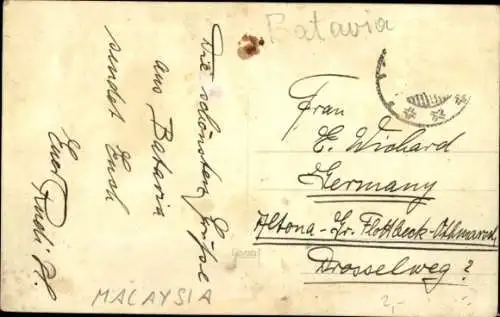 Batavia
Die schönsten Grüße
aus Batavia
sendet Euch
Euer Rudi
Frau
E. Wichard
Germany
Altona-Gr. Flottbeck-Othmarsch.
Drosselweg ?
MALAYSIA
2,-